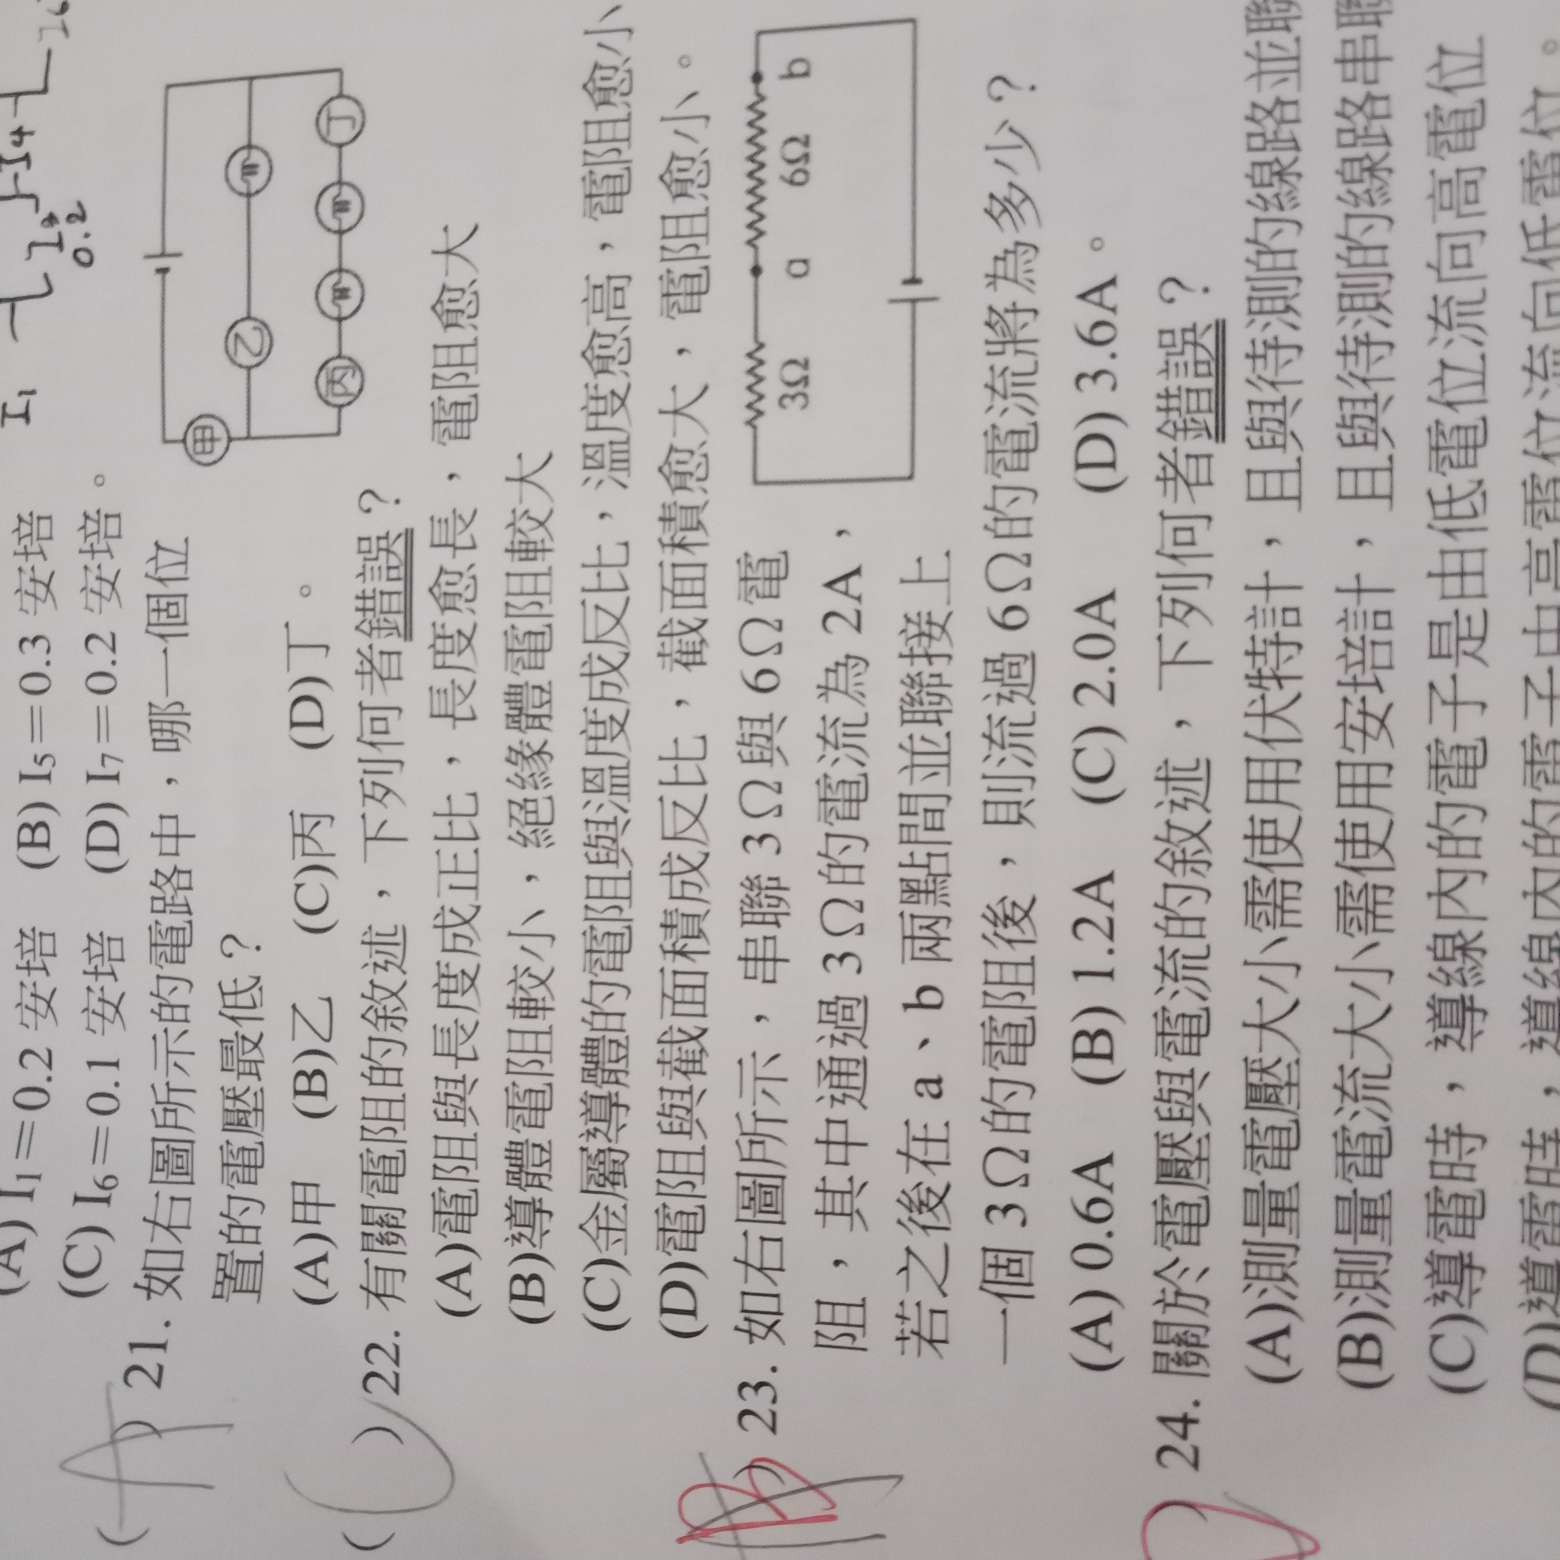 I₁ I₂ 0.2 I₄
(A) I₁＝0.2 安培 (B) I₅＝0.3 安培
(C) I₆＝0.1 安培 (D) I₇＝0.2 安培。
( A ) 21. 如右圖所示的電路中，哪一個位
置的電壓最低？
(A)甲 (B)乙 (C)丙 (D)丁。
甲 乙 丙 丁
( C ) 22. 有關電阻的敘述，下列何者錯誤？
(A)電阻與長度成正比，長度愈長，電阻愈大
(B)導體電阻較小，絕緣體電阻較大
(C)金屬導體的電阻與溫度成反比，溫度愈高，電阻愈小
(D)電阻與截面積成反比，截面積愈大，電阻愈小。
( B ) 23. 如右圖所示，串聯 3Ω與 6Ω電
阻，其中通過 3Ω的電流為 2A，
若之後在 a、b 兩點間並聯接上
一個 3Ω的電阻後，則流過 6Ω的電流將為多少？
(A) 0.6A (B) 1.2A (C) 2.0A (D) 3.6A。
3Ω a 6Ω b
) 24. 關於電壓與電流的敘述，下列何者錯誤？
(A)測量電壓大小需使用伏特計，且與待測的線路並聯
(B)測量電流大小需使用安培計，且與待測的線路串聯
(C)導電時，導線內的電子是由低電位流向高電位
(D)導電時，導線內的電子由高電位流向低電位。